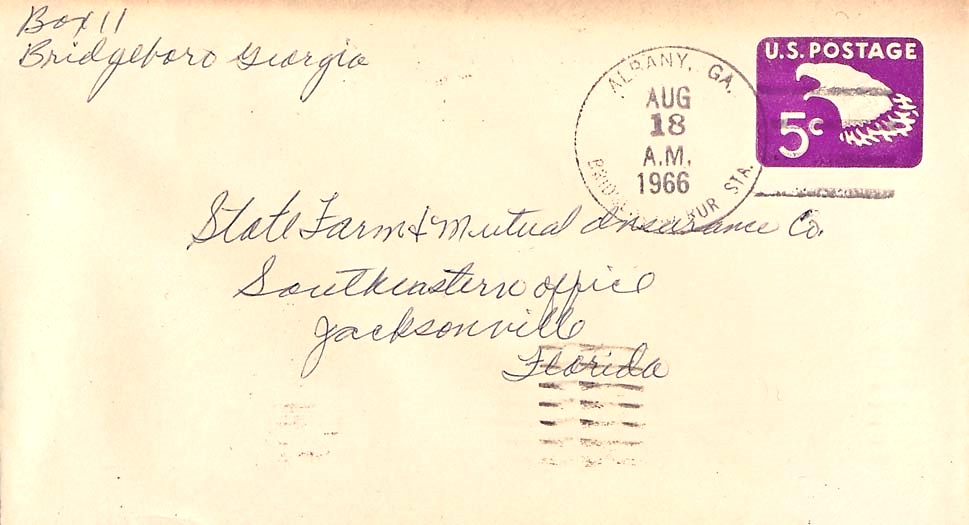 Box 11
Bridgeboro Georgia
U.S. POSTAGE
5c
ALBANY, GA.
AUG
18
A.M.
1966
RUR STA.
State Farm & Mutual Insurance Co.
Southeastern office
Jacksonville
Florida